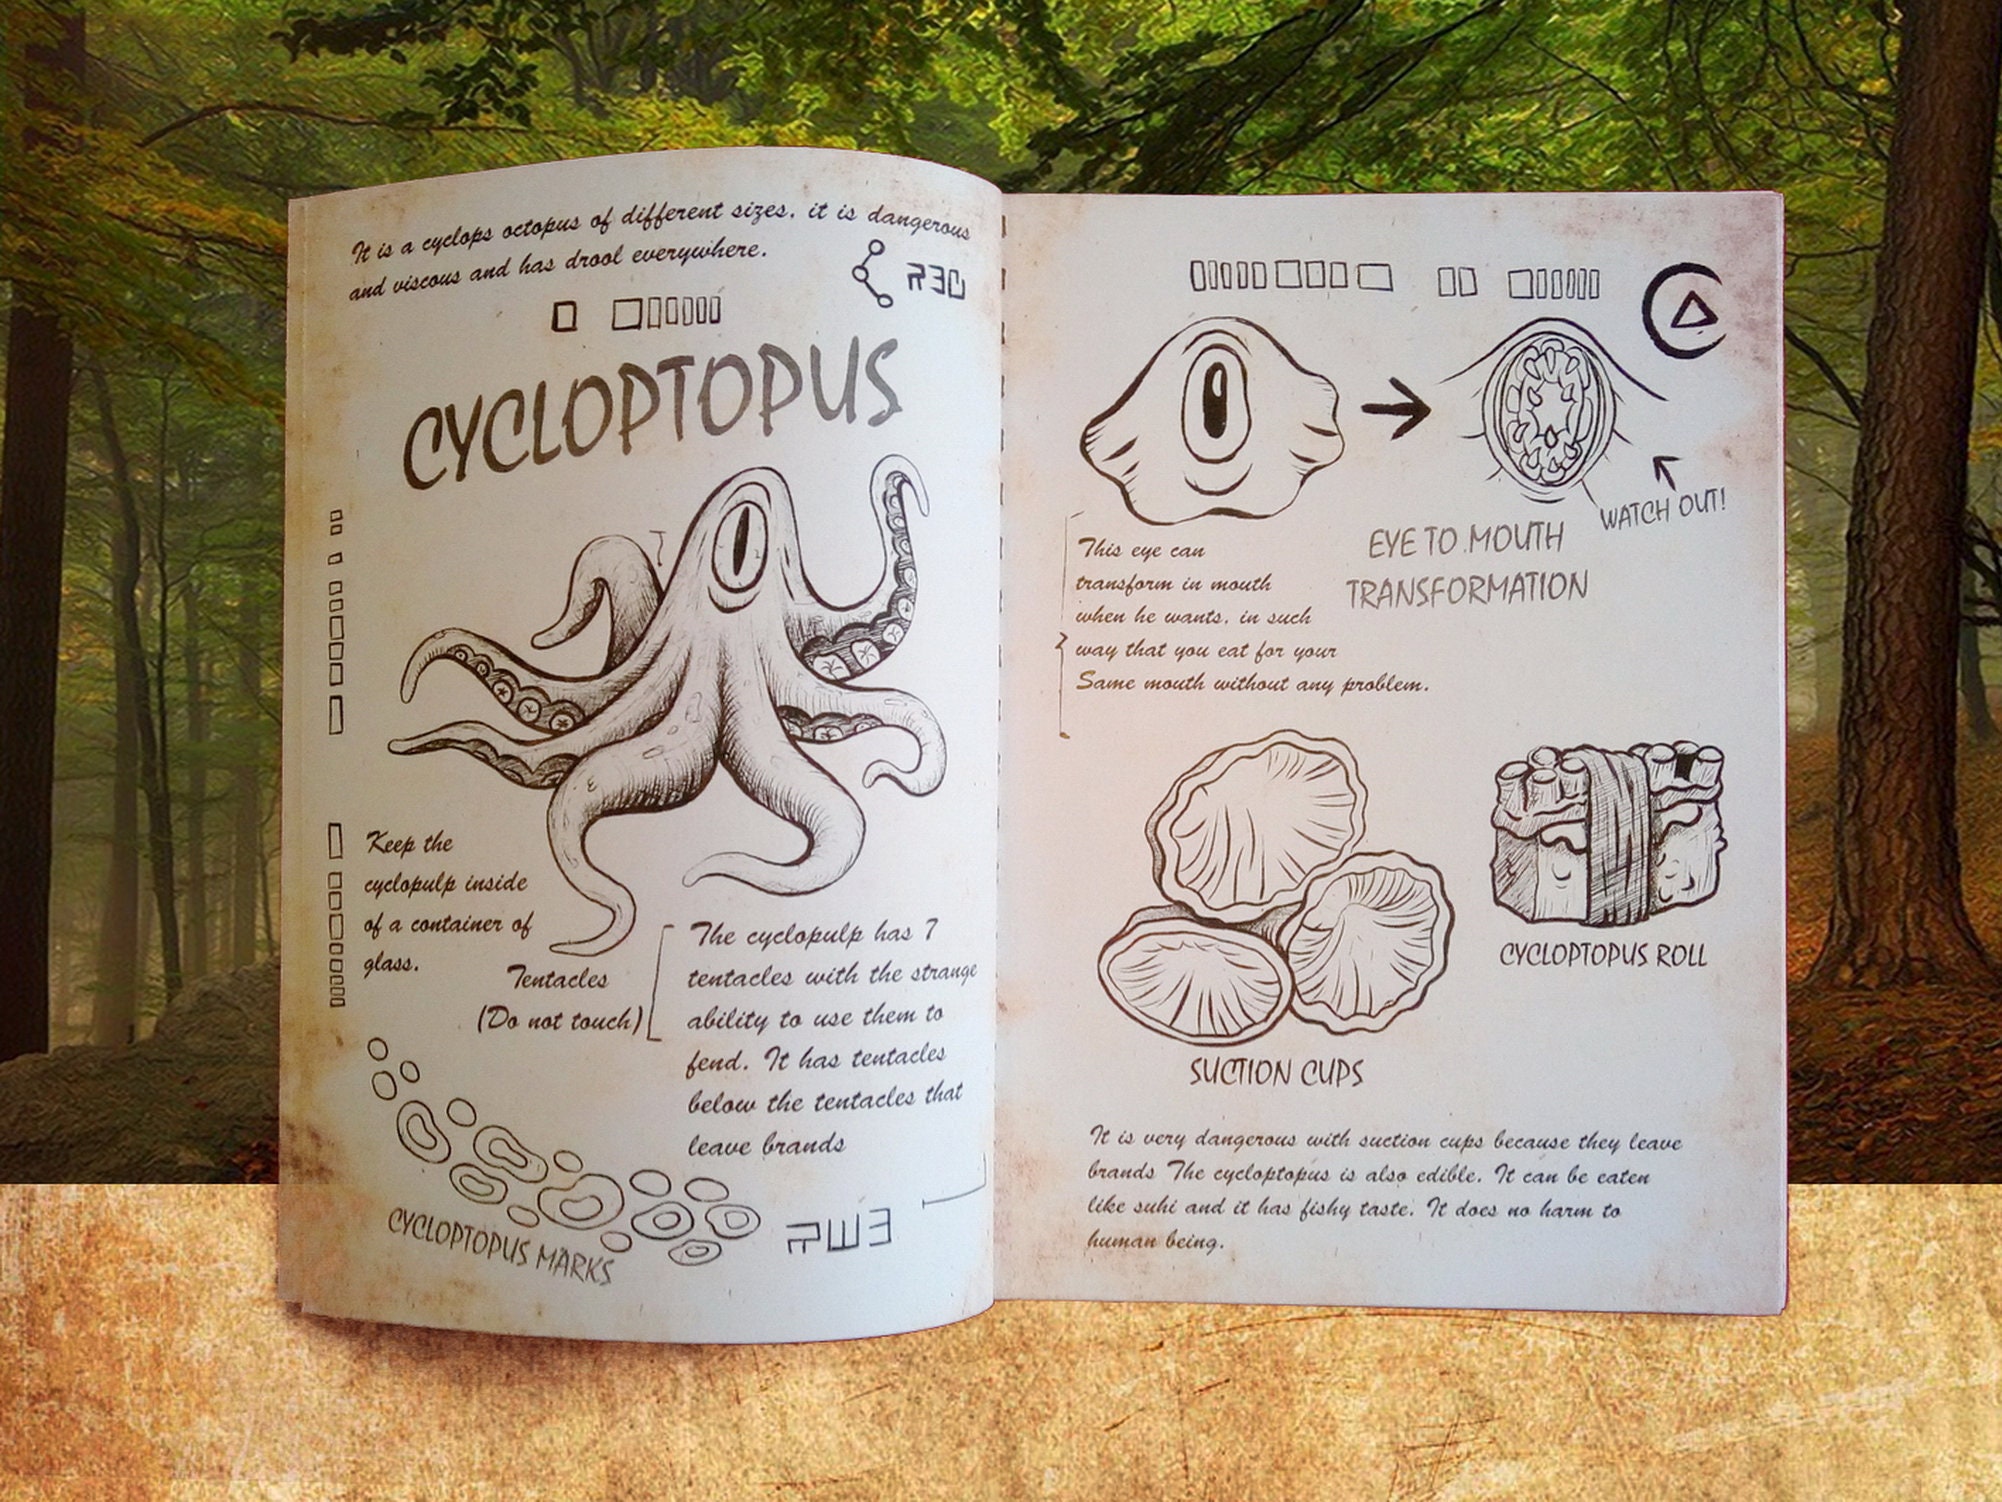 It is a cyclops octopus of different sizes. it is dangerous
and viscous and has drool everywhere.
CYCLOPTOPUS
Keep the
cyclopulp inside
of a container of
glass.
Tentacles
(Do not touch)
The cyclopulp has 7
tentacles with the strange
ability to use them to
fend. It has tentacles
below the tentacles that
leave brands
CYCLOPTOPUS MARKS
WATCH OUT!
EYE TO MOUTH
TRANSFORMATION
This eye can
transform in mouth
when he wants, in such
way that you eat for your
Same mouth without any problem.
CYCLOPTOPUS ROLL
SUCTION CUPS
It is very dangerous with suction cups because they leave
brands The cycloptopus is also edible. It can be eaten
like suhi and it has fishy taste. It does no harm to
human being.